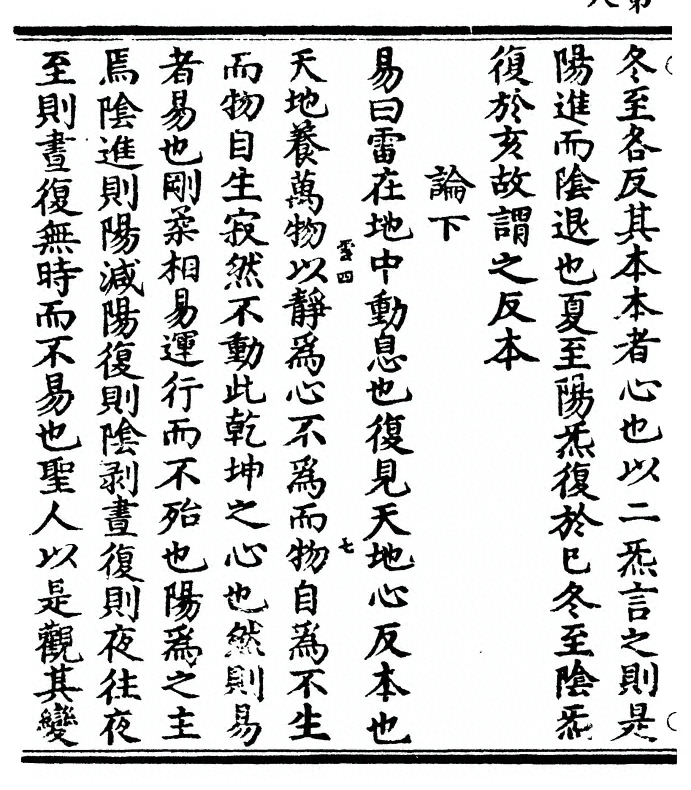 冬至各反其本本者心也以二炁言之則是
陽進而陰退也夏至陽炁復於巳冬至陰炁
復於亥故謂之反本
論下
易曰雷在地中動息也復見天地心反本也
雲四
七
天地養萬物以靜爲心不爲而物自爲不生
而物自生寂然不動此乾坤之心也然則易
者易也剛柔相易運行而不殆也陽爲之主
焉陰進則陽減陽復則陰剥晝復則夜往夜
至則晝復無時而不易也聖人以是觀其變